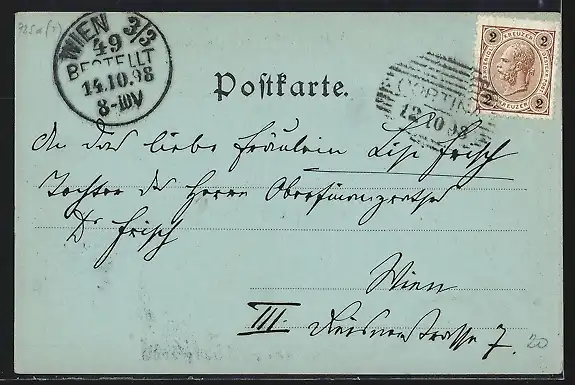 725a(7)
WIEN 3/3
49
BESTELLT
14.10.98
8-10V
Postkarte.
2 KREUZER 2
2 KREUZER 2
CORTINA
12 10 98
An das liebe Fräulein Lisi Frisch
Tochter des Herrn Oberfinanzrathes
Dr Frisch
Wien
III. Reisnerstrasse 7.
20